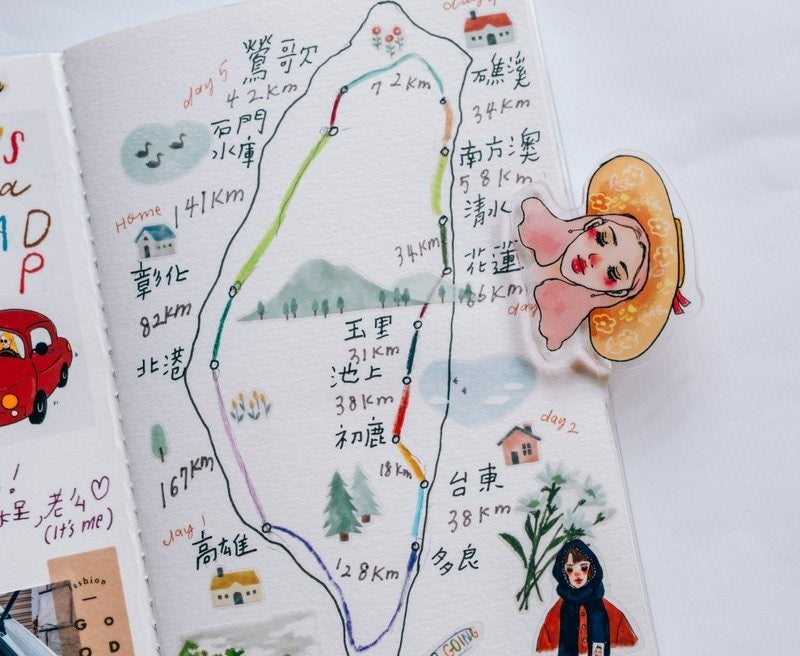 鶯歌
day 5
42Km
石門
水庫
141Km
Home
彰化
82Km
北港
167Km
day 1
高雄
72Km
礁溪
34Km
南方澳
58Km
清水
34Km
花蓮
66Km
玉里
31Km
池上
38Km
初鹿
18Km
day 2
台東
38Km
多良
128Km
GOING
D
P
!
(It's me)
fashion
GOOD